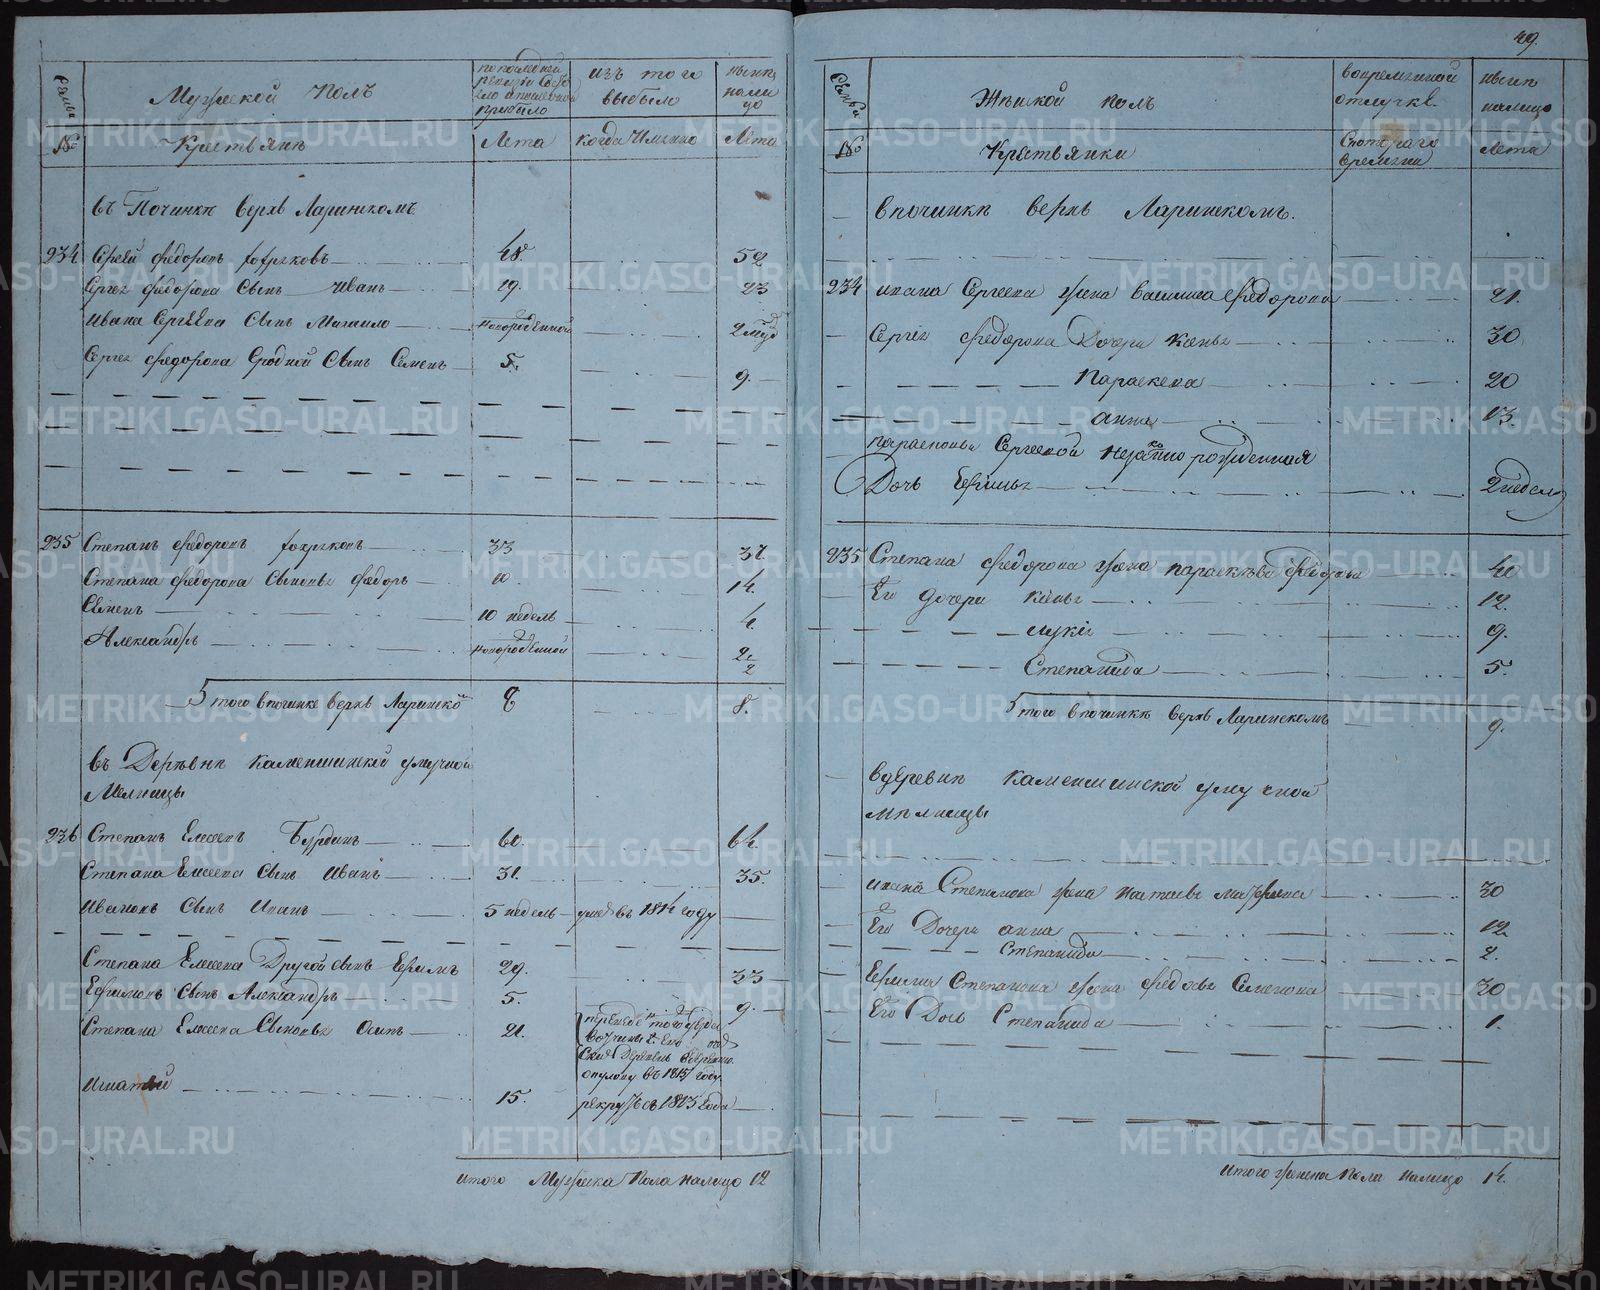 49.
Семьи
Мужеской полъ
по последней
ревизіи
прибыло
изъ того
выбыло
нынѣ
нали
цо
№
Крестьянѣ
Лета
когда имянно
Лета
въ Починкѣ верхъ Ларинскомъ
234 Сергѣй Федоровъ 48. 52
Сергея Федорова Сынъ Иванъ 19. 23
Ивана Сергѣева Сынъ Михаило новорожденной
Сергея Федорова Сынъ Семенъ 5. 9.
235 Степанъ Федоровъ 33 37.
Степана Федорова Сыновья Федоръ 10 14.
Семенъ 10 недель 4.
Александръ новорожденной 2 1/2
Итого в починке верхъ Ларинско 8 8.
въ Деревнѣ каменшинской мучной
Мелницы
236 Степанъ Елисеевъ Бурдинъ 60. 64.
Степана Елисеева Сынъ Иванъ 31. 35.
Ивановъ Сынъ Иванъ 5 недель умеръ въ 1814 году
Степана Елисеева Другой сынъ Ефимъ 29. 33
Ефимовъ Сынъ Александръ 5. 9.
Степана Елисеева Сыновья Осипъ 21.
въ 1815 году
Игнатей 15. рекрутъ съ 1813 года
итого Мужеска Пола налицо 12
Семьи
Женской полъ
во временной
отлучкѣ
нынѣ
налицо
№
Крестьянки
Съ котораго
времени
Лета
в починкѣ верхъ Ларинскомъ.
234 Ивана Сергеева жена Василиса Федорова 21.
Сергея Федорова Дочери Ксенья 30
Параскева 20
Анна 13.
Парасковьи Сергеевой незаконно рожденная
Дочь 2 недели
235 Степана Федорова жена Параскѣва Федорова 40
Его дочери Ксенья 12.
Лукия 9.
Степанида 5.
Итого в починкѣ верхъ Ларинскомъ 9.
в деревнѣ каменшинской мучной
мѣлницы
Ивана Степанова жена Наталья 30
Его Дочери Анна 12
Степанида 2.
Ефима Степанова жена Федосья Семенова 30
Его Дочь Степанида 1.
Итого женска Пола налицо 14.
METRIKI.GASO-URAL.RU